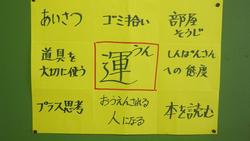 あいさつ
ゴミ拾い
部屋
そうじ
道具を
大切に使う
うん
運
しんぱんさん
への態度
プラス思考
おうえんされる
人になる
本を読む